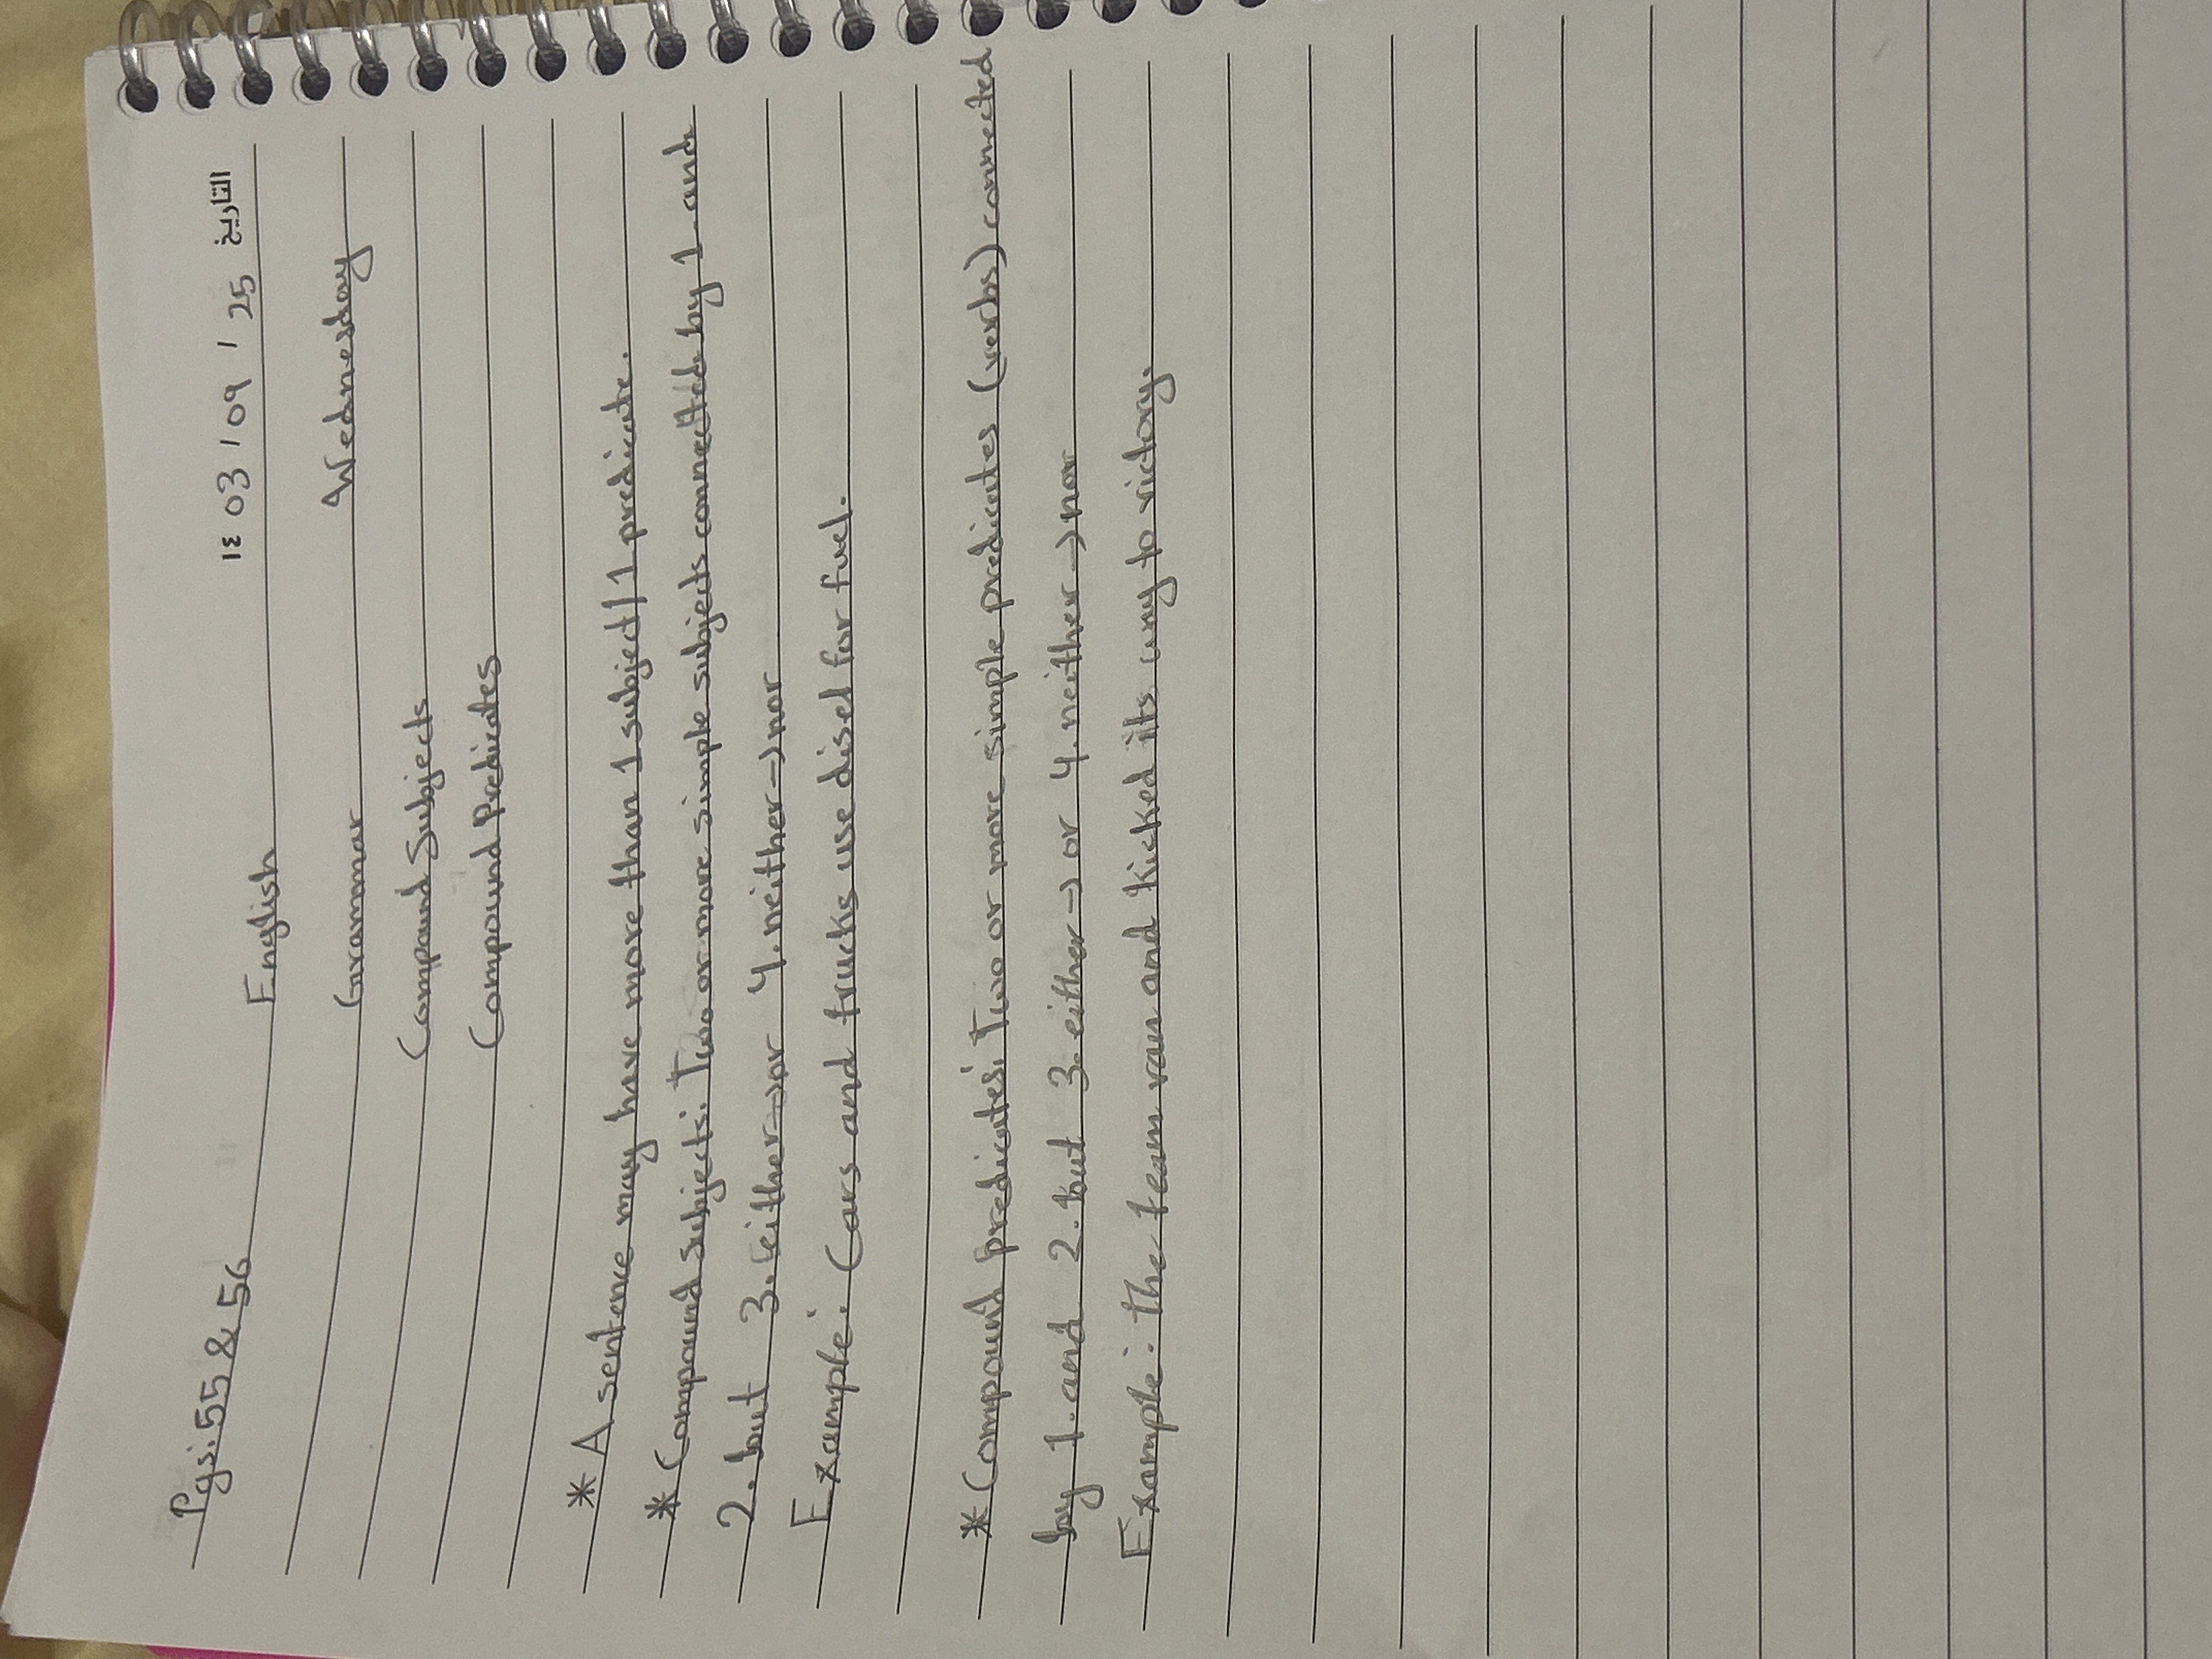 Pgs: 55 & 56
١٤ 03 / 09 / 25 التاريخ
English
Grammar Wednesday
Compound Subjects
Compound Predicates
* A sentence may have more than 1 subject/1 predicate.
* Compound subjects: Two or more simple subjects connected by 1. and
2. but 3. either→or 4. neither→nor
Example: Cars and trucks use disel for fuel.
* Compound predicates: Two or more simple predicates (verbs) connected
by 1. and 2. but 3. either→ or 4. neither→nor
Example: the team ran and kicked its way to victory.